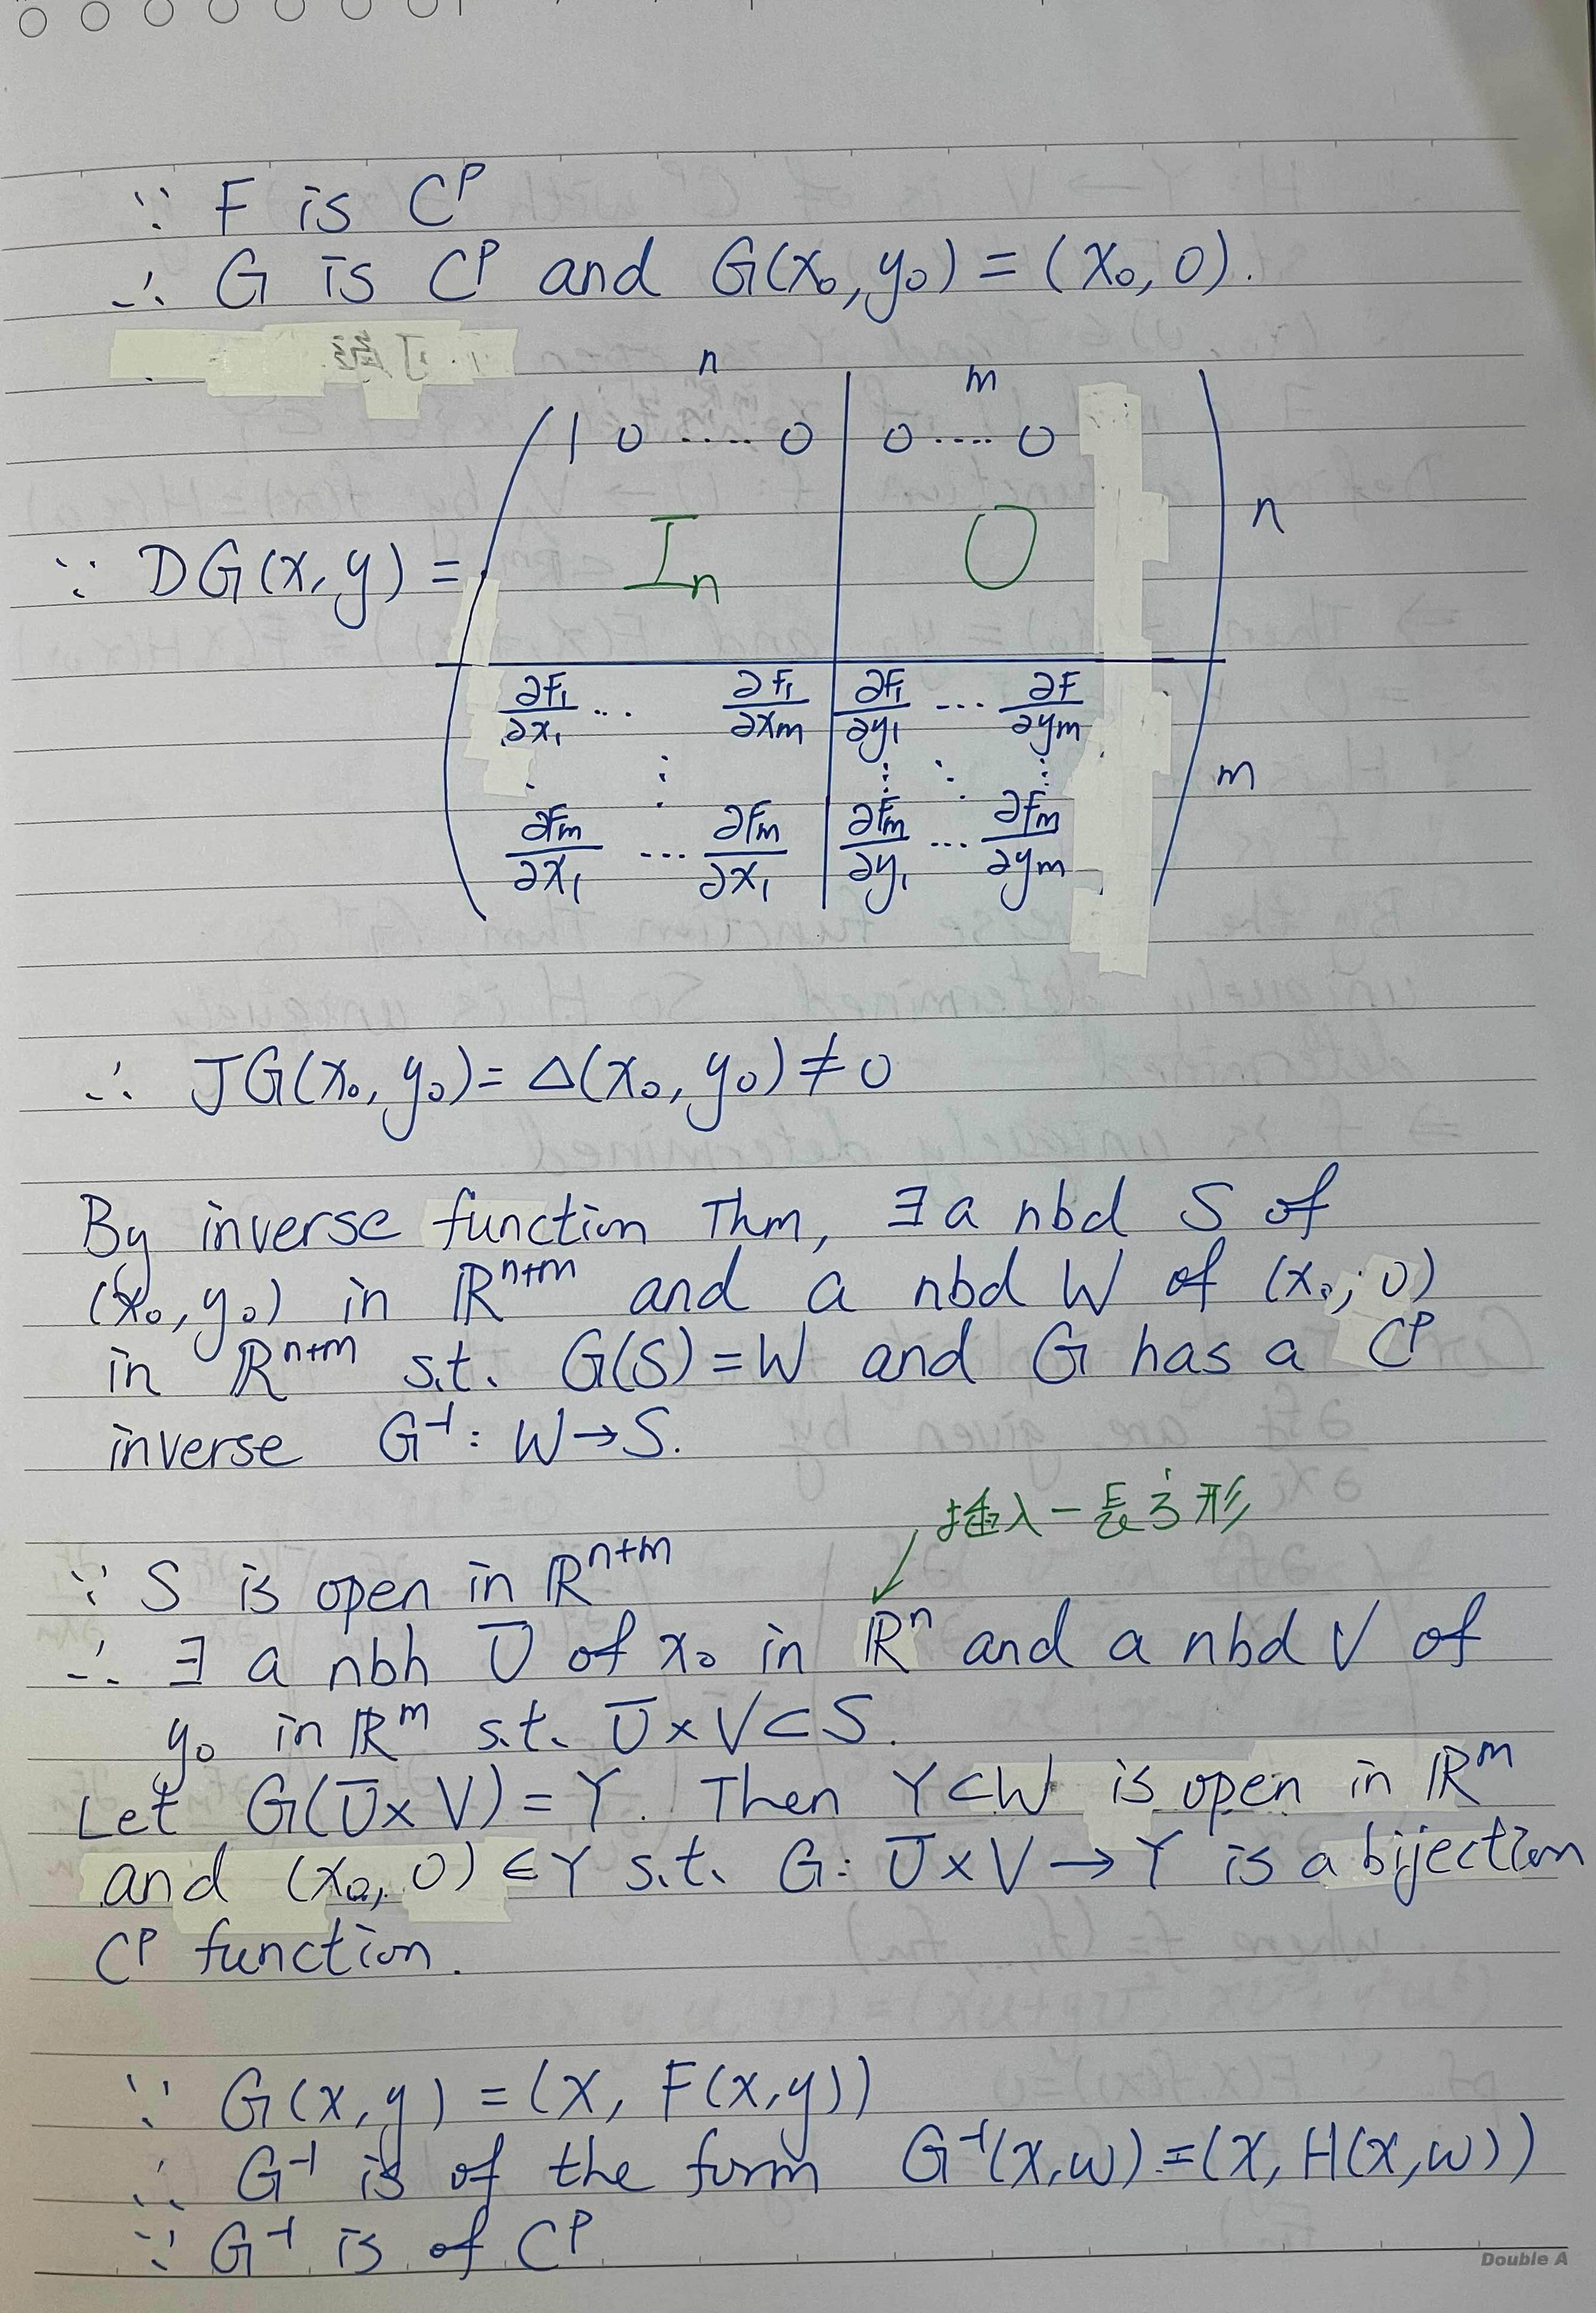 ∵ F is C^p
∴ G is C^p and G(x₀, y₀) = (x₀, 0).
n m
1 0 ..... 0 | 0 .... 0
∵ DG(x, y) = I_n O n
∂F₁/∂x₁ ... ∂F₁/∂x_m | ∂F₁/∂y₁ ... ∂F/∂y_m
⋮ ⋮ ⋱ ⋮ m
∂F_m/∂x₁ ... ∂F_m/∂x₁ | ∂F_m/∂y₁ ... ∂F_m/∂y_m
∴ JG(x₀, y₀) = Δ(x₀, y₀) ≠ 0
By inverse function Thm, ∃ a nbd S of
(x₀, y₀) in ℝ^{n+m} and a nbd W of (x₀, 0)
in ℝ^{n+m} s.t. G(S) = W and G has a C^p
inverse G⁻¹: W → S.
插入一長方形
∵ S is open in ℝ^{n+m}
∴ ∃ a nbh U of x₀ in ℝ^n and a nbd V of
y₀ in ℝ^m s.t. U × V ⊂ S.
Let G(U × V) = Y. Then Y ⊂ W is open in ℝ^m
and (x₀, 0) ∈ Y s.t. G: U × V → Y is a bijection
C^p function.
∵ G(x, y) = (x, F(x, y))
∴ G⁻¹ is of the form G⁻¹(x, w) = (x, H(x, w))
∵ G⁻¹ is of C^p
Double A